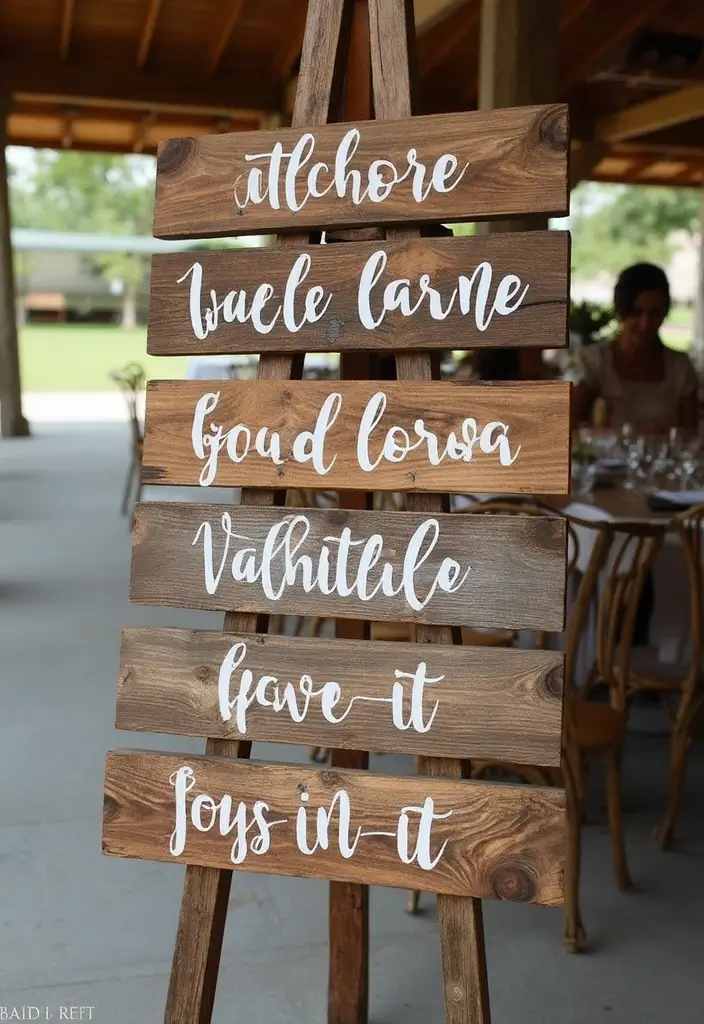 atlchore
Waele larne
Goud lorwa
Valhitlile
have-it
Joys-in-it
BAID I REFT